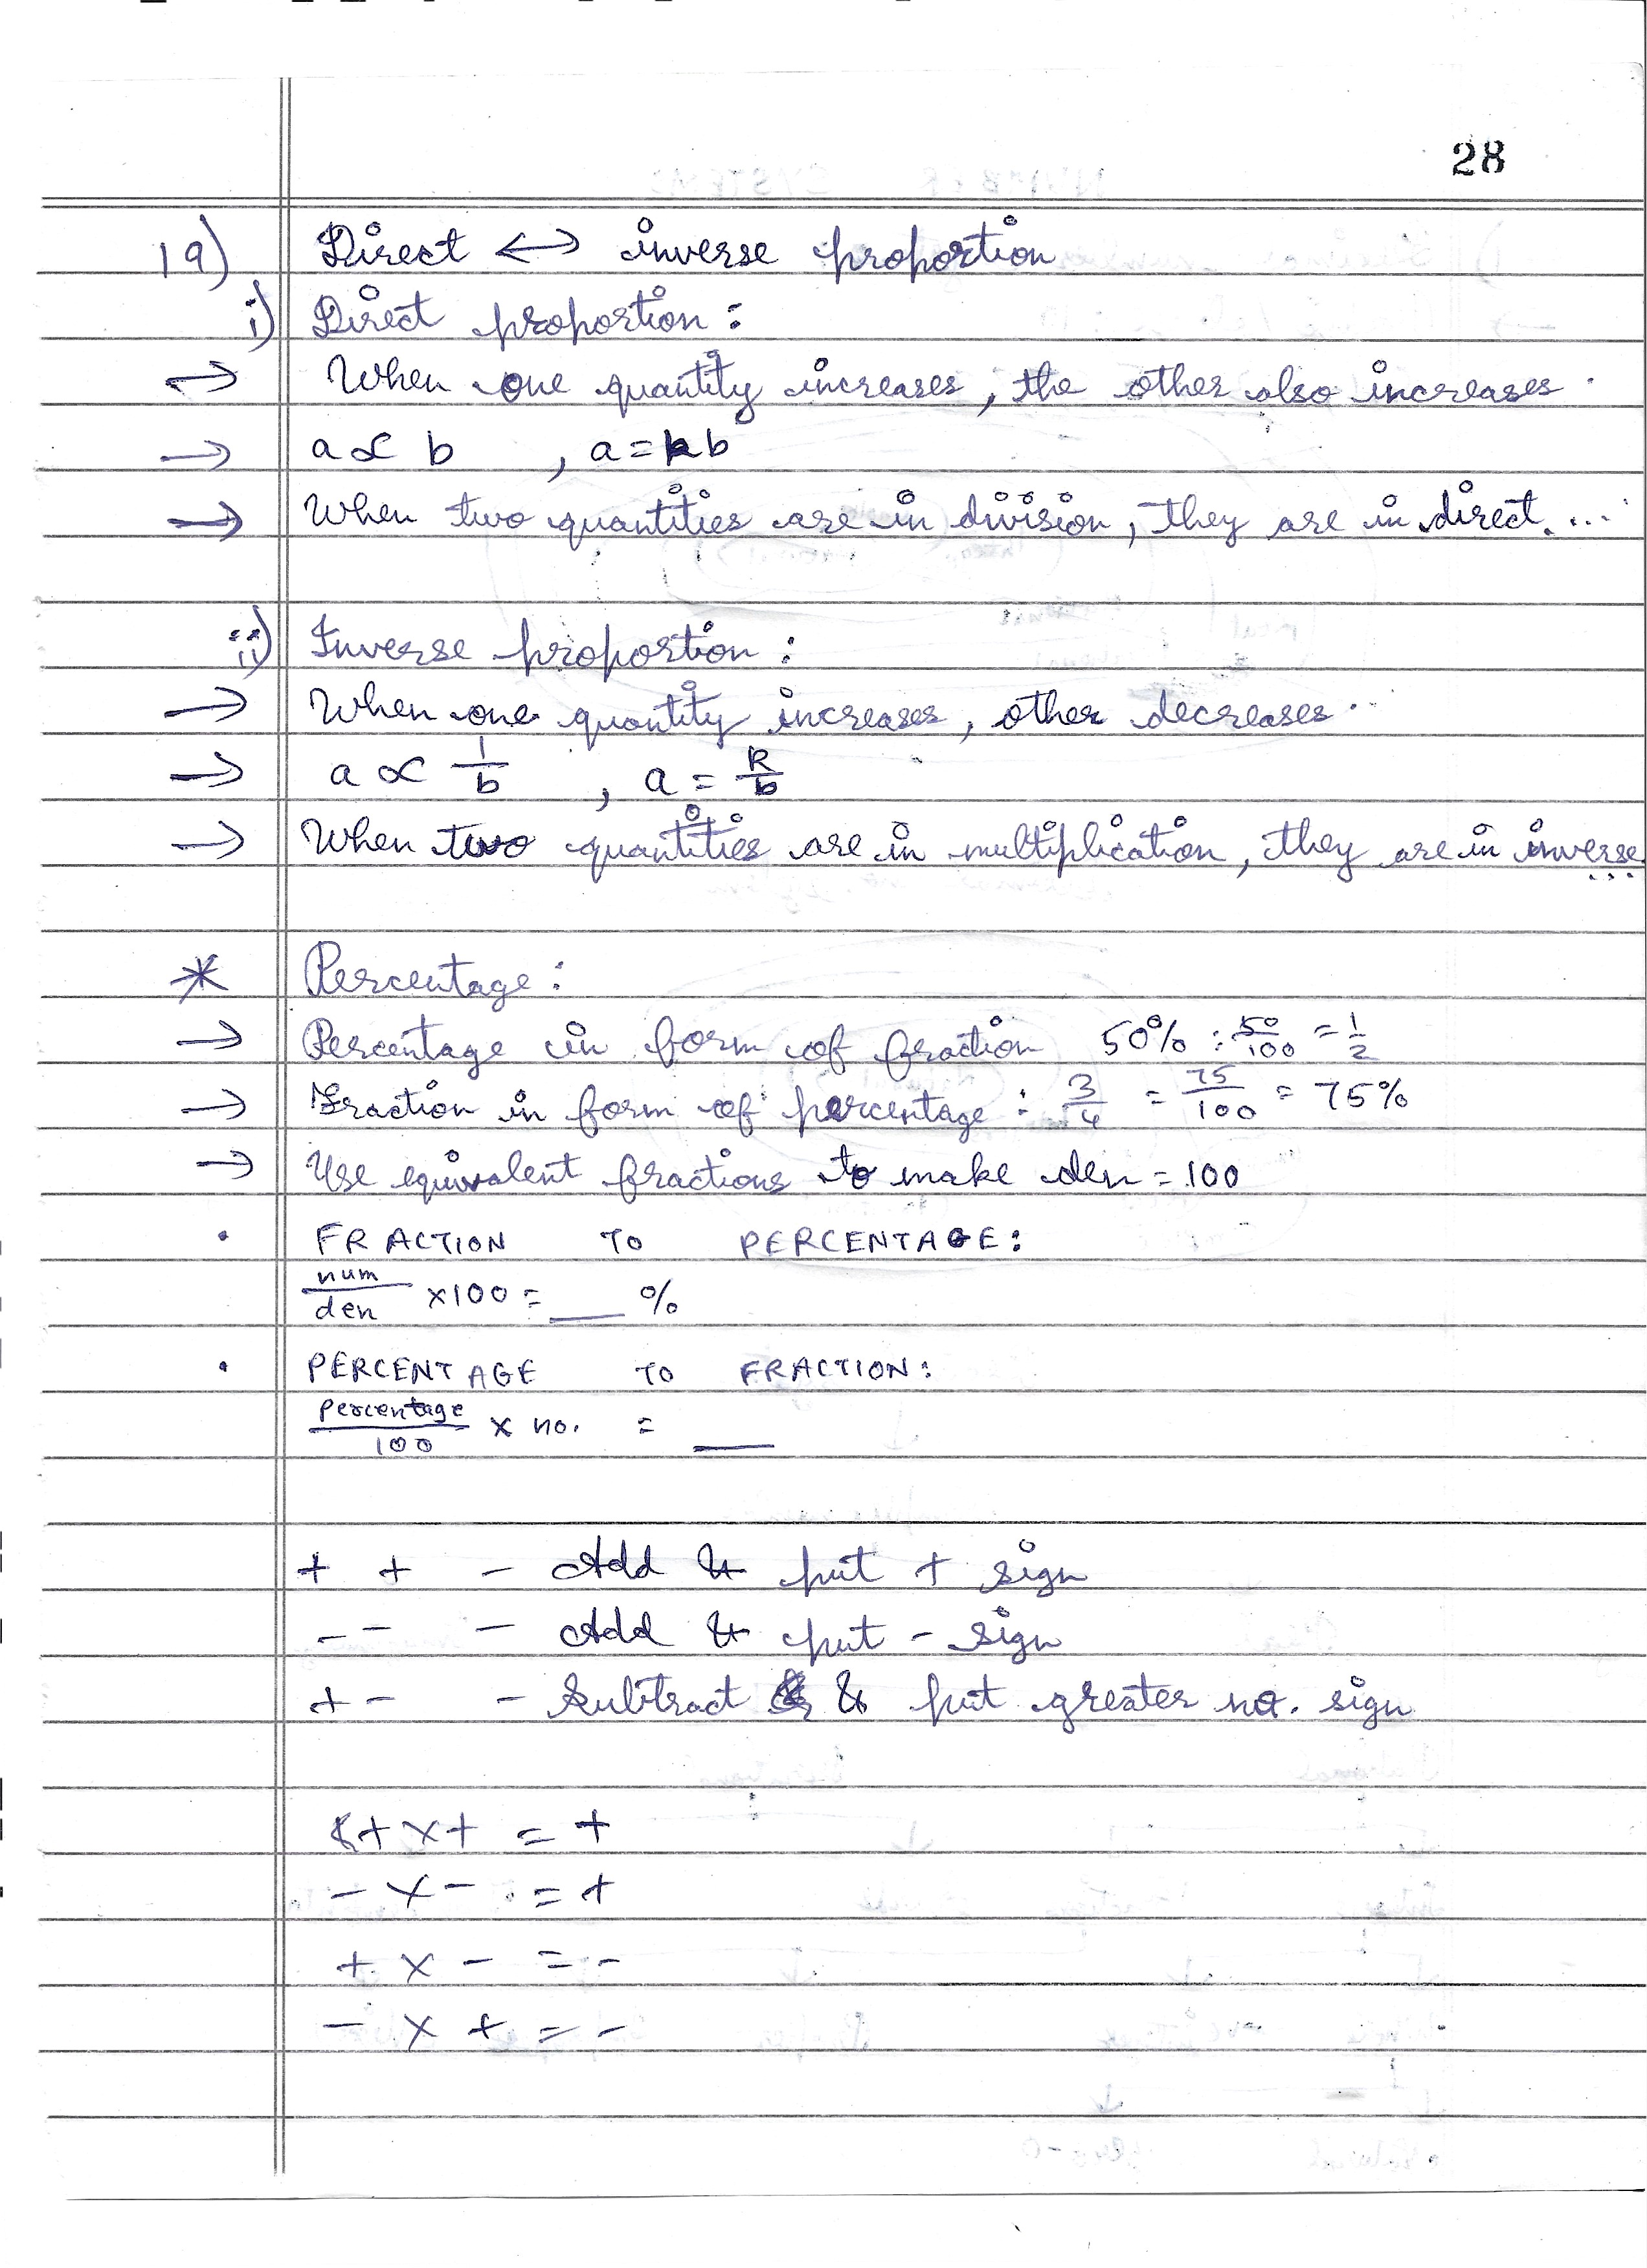 28
19) Direct ↔ inverse proportion
i) Direct proportion :
→ When one quantity increases, the other also increases.
→ a ∝ b , a = kb
→ When two quantities are in division, they are in direct....
ii) Inverse proportion :
→ When one quantity increases, other decreases..
→ a ∝ 1/b , a = k/b
→ When two quantities are in multiplication, they are in inverse...
* Percentage :
→ Percentage in form of fraction 50% : 50/100 = 1/2
→ Fraction in form of percentage : 3/4 = 75/100 = 75%
→ Use equivalent fractions to make den = 100
• FRACTION TO PERCENTAGE :
num/den ×100 = ___ %
• PERCENTAGE TO FRACTION :
percentage/100 × no. = ___
+ + - Add & put + sign
- - - Add & put - sign
+ - - Subtract & put greater no. sign
+ × + = +
- × - = +
+ × - = -
- × + = -